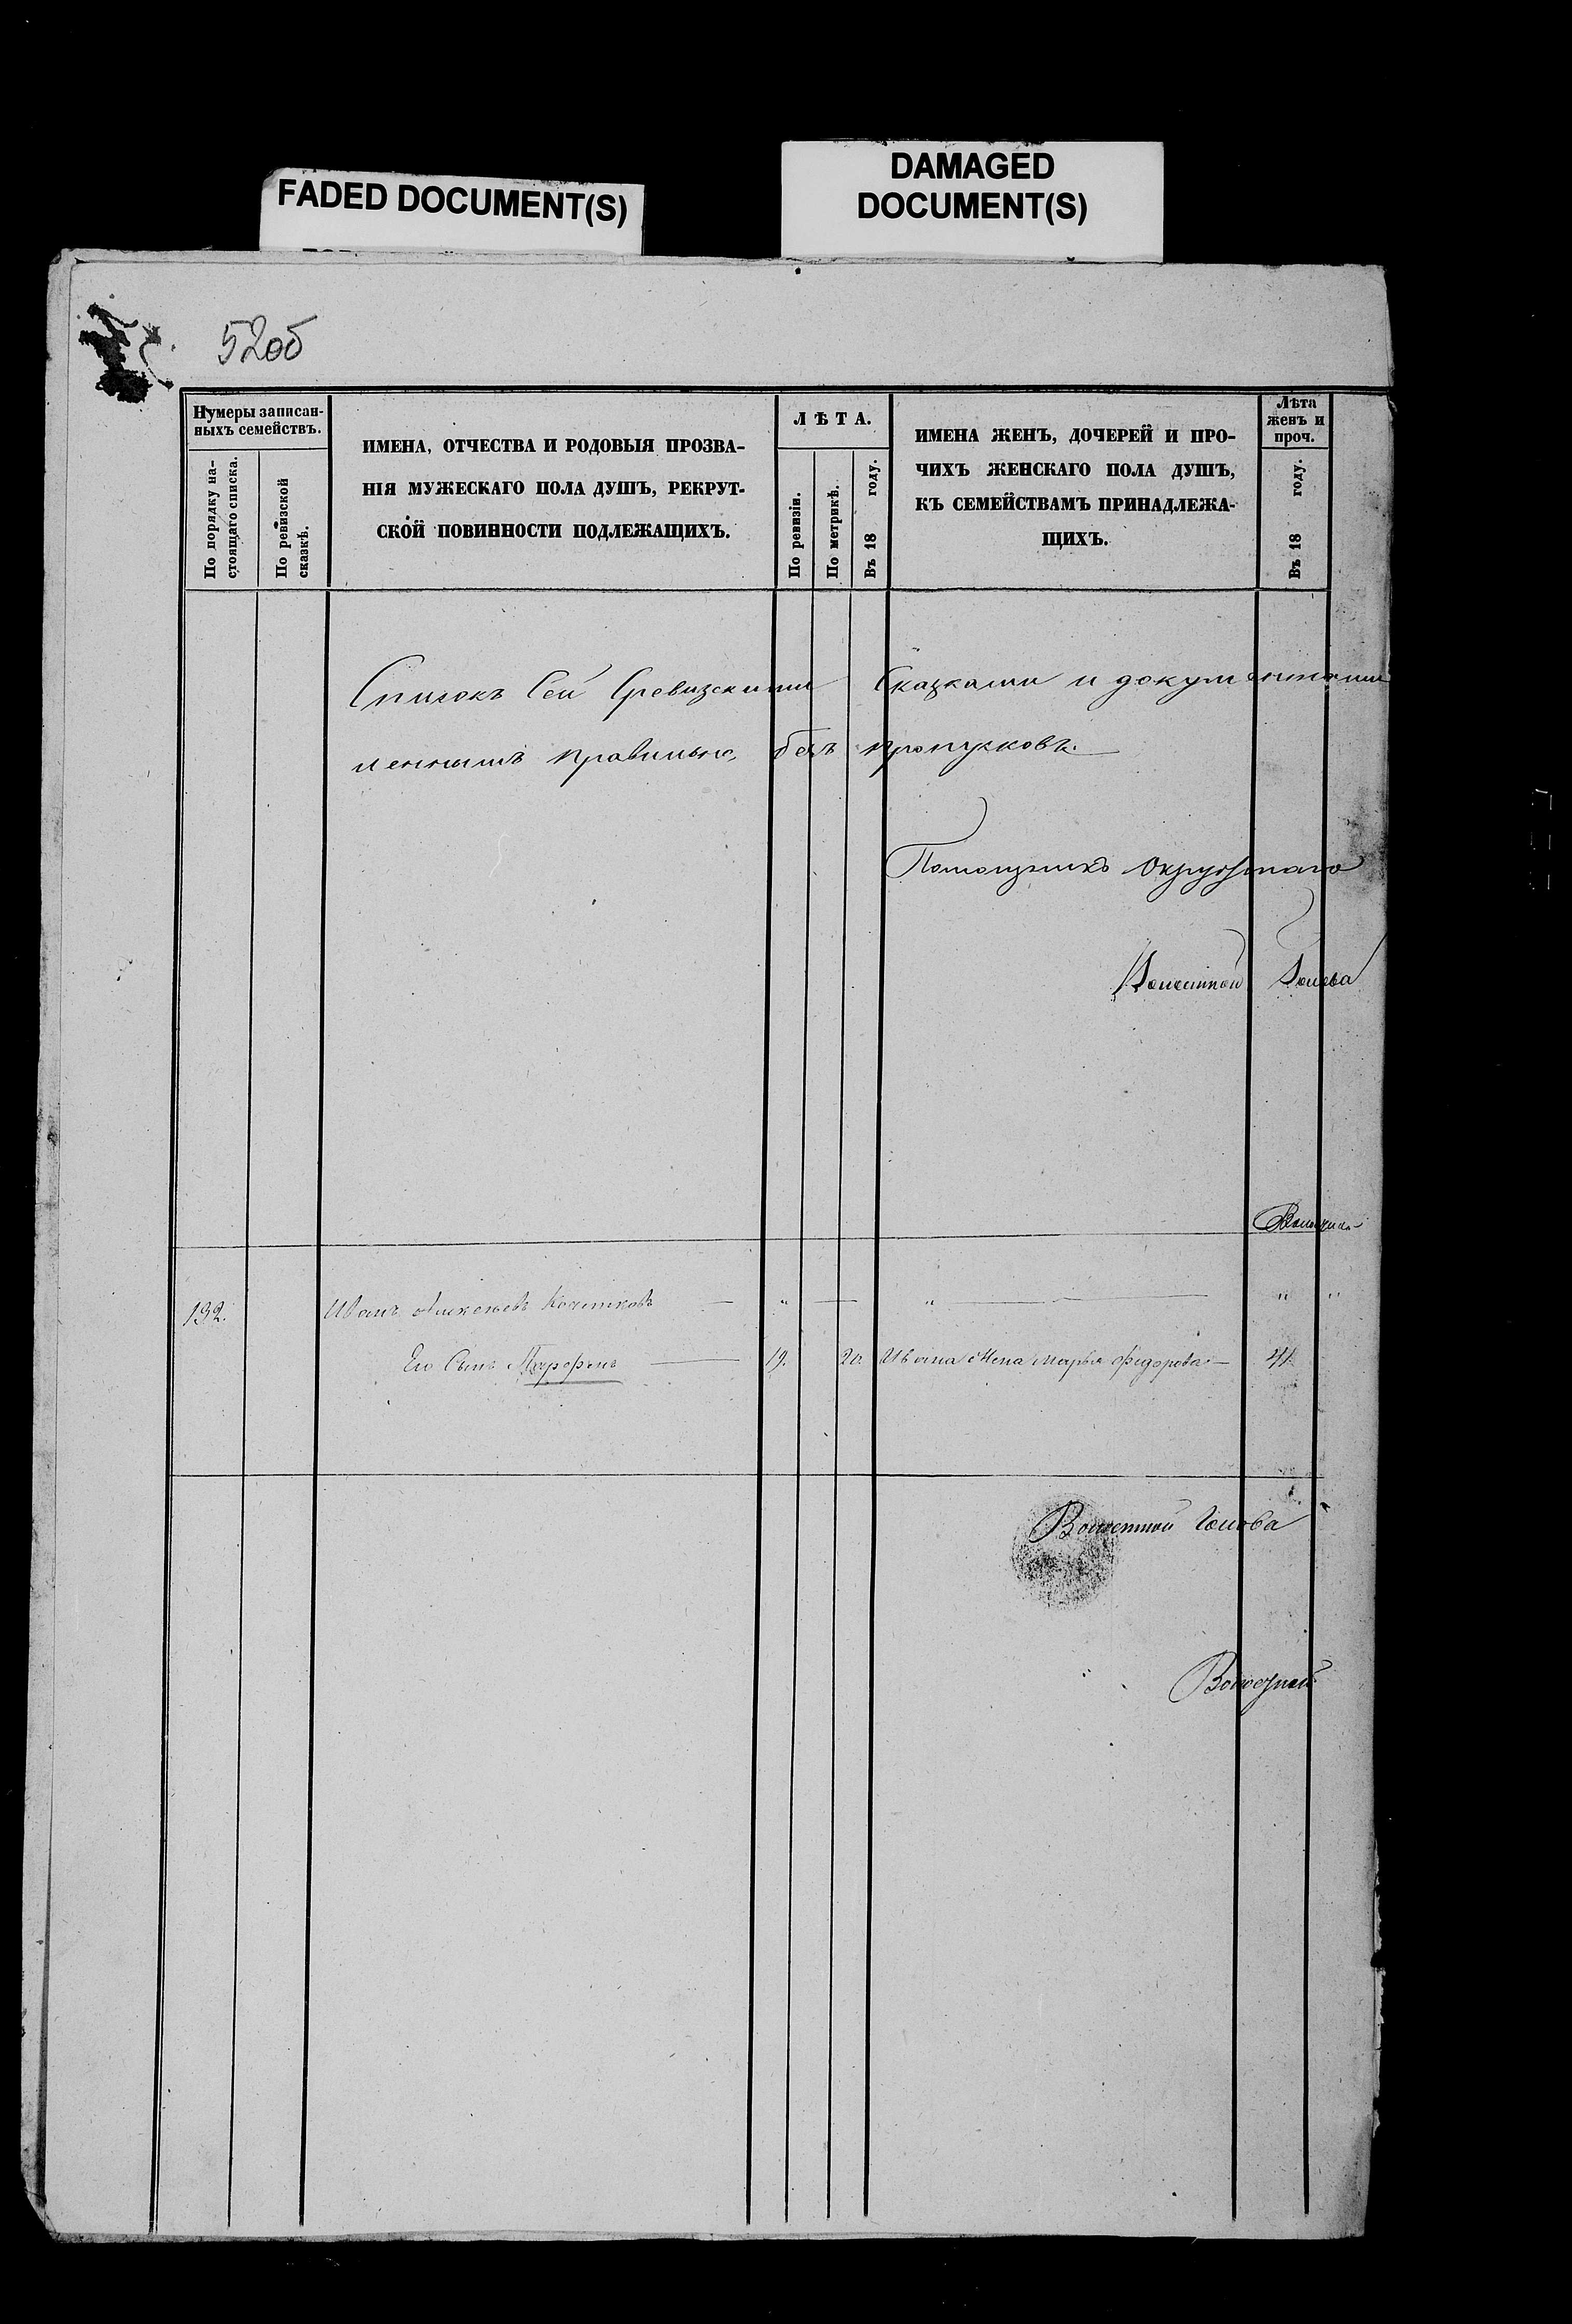 FADED DOCUMENT(S)
DAMAGED
DOCUMENT(S)
52об
Нумеры записан-
ныхъ семействъ.
По порядку на-
стоящаго списка.
По ревизской
сказкѣ.
ИМЕНА, ОТЧЕСТВА И РОДОВЫЯ ПРОЗВА-
НІЯ МУЖЕСКАГО ПОЛА ДУШЪ, РЕКРУТ-
СКОЙ ПОВИННОСТИ ПОДЛЕЖАЩИХЪ.
ЛѢТА.
По ревизіи.
По метрикѣ.
Въ 18 году.
ИМЕНА ЖЕНЪ, ДОЧЕРЕЙ И ПРО-
ЧИХЪ ЖЕНСКАГО ПОЛА ДУШЪ,
КЪ СЕМЕЙСТВАМЪ ПРИНАДЛЕЖА-
ЩИХЪ.
Лѣта
женъ и
проч.
Въ 18 году.
Списокъ Сей Сревизскими Сказками и документами
леннымъ правильно, безъ пропусковъ.
Помощникъ Окружнаго
Волостной Голова
192. Иванъ Алексѣевъ — " — " — " "
Его Сынъ — 19. 20 Ивана Жена Марья Федорова — 41
Волостной Голова